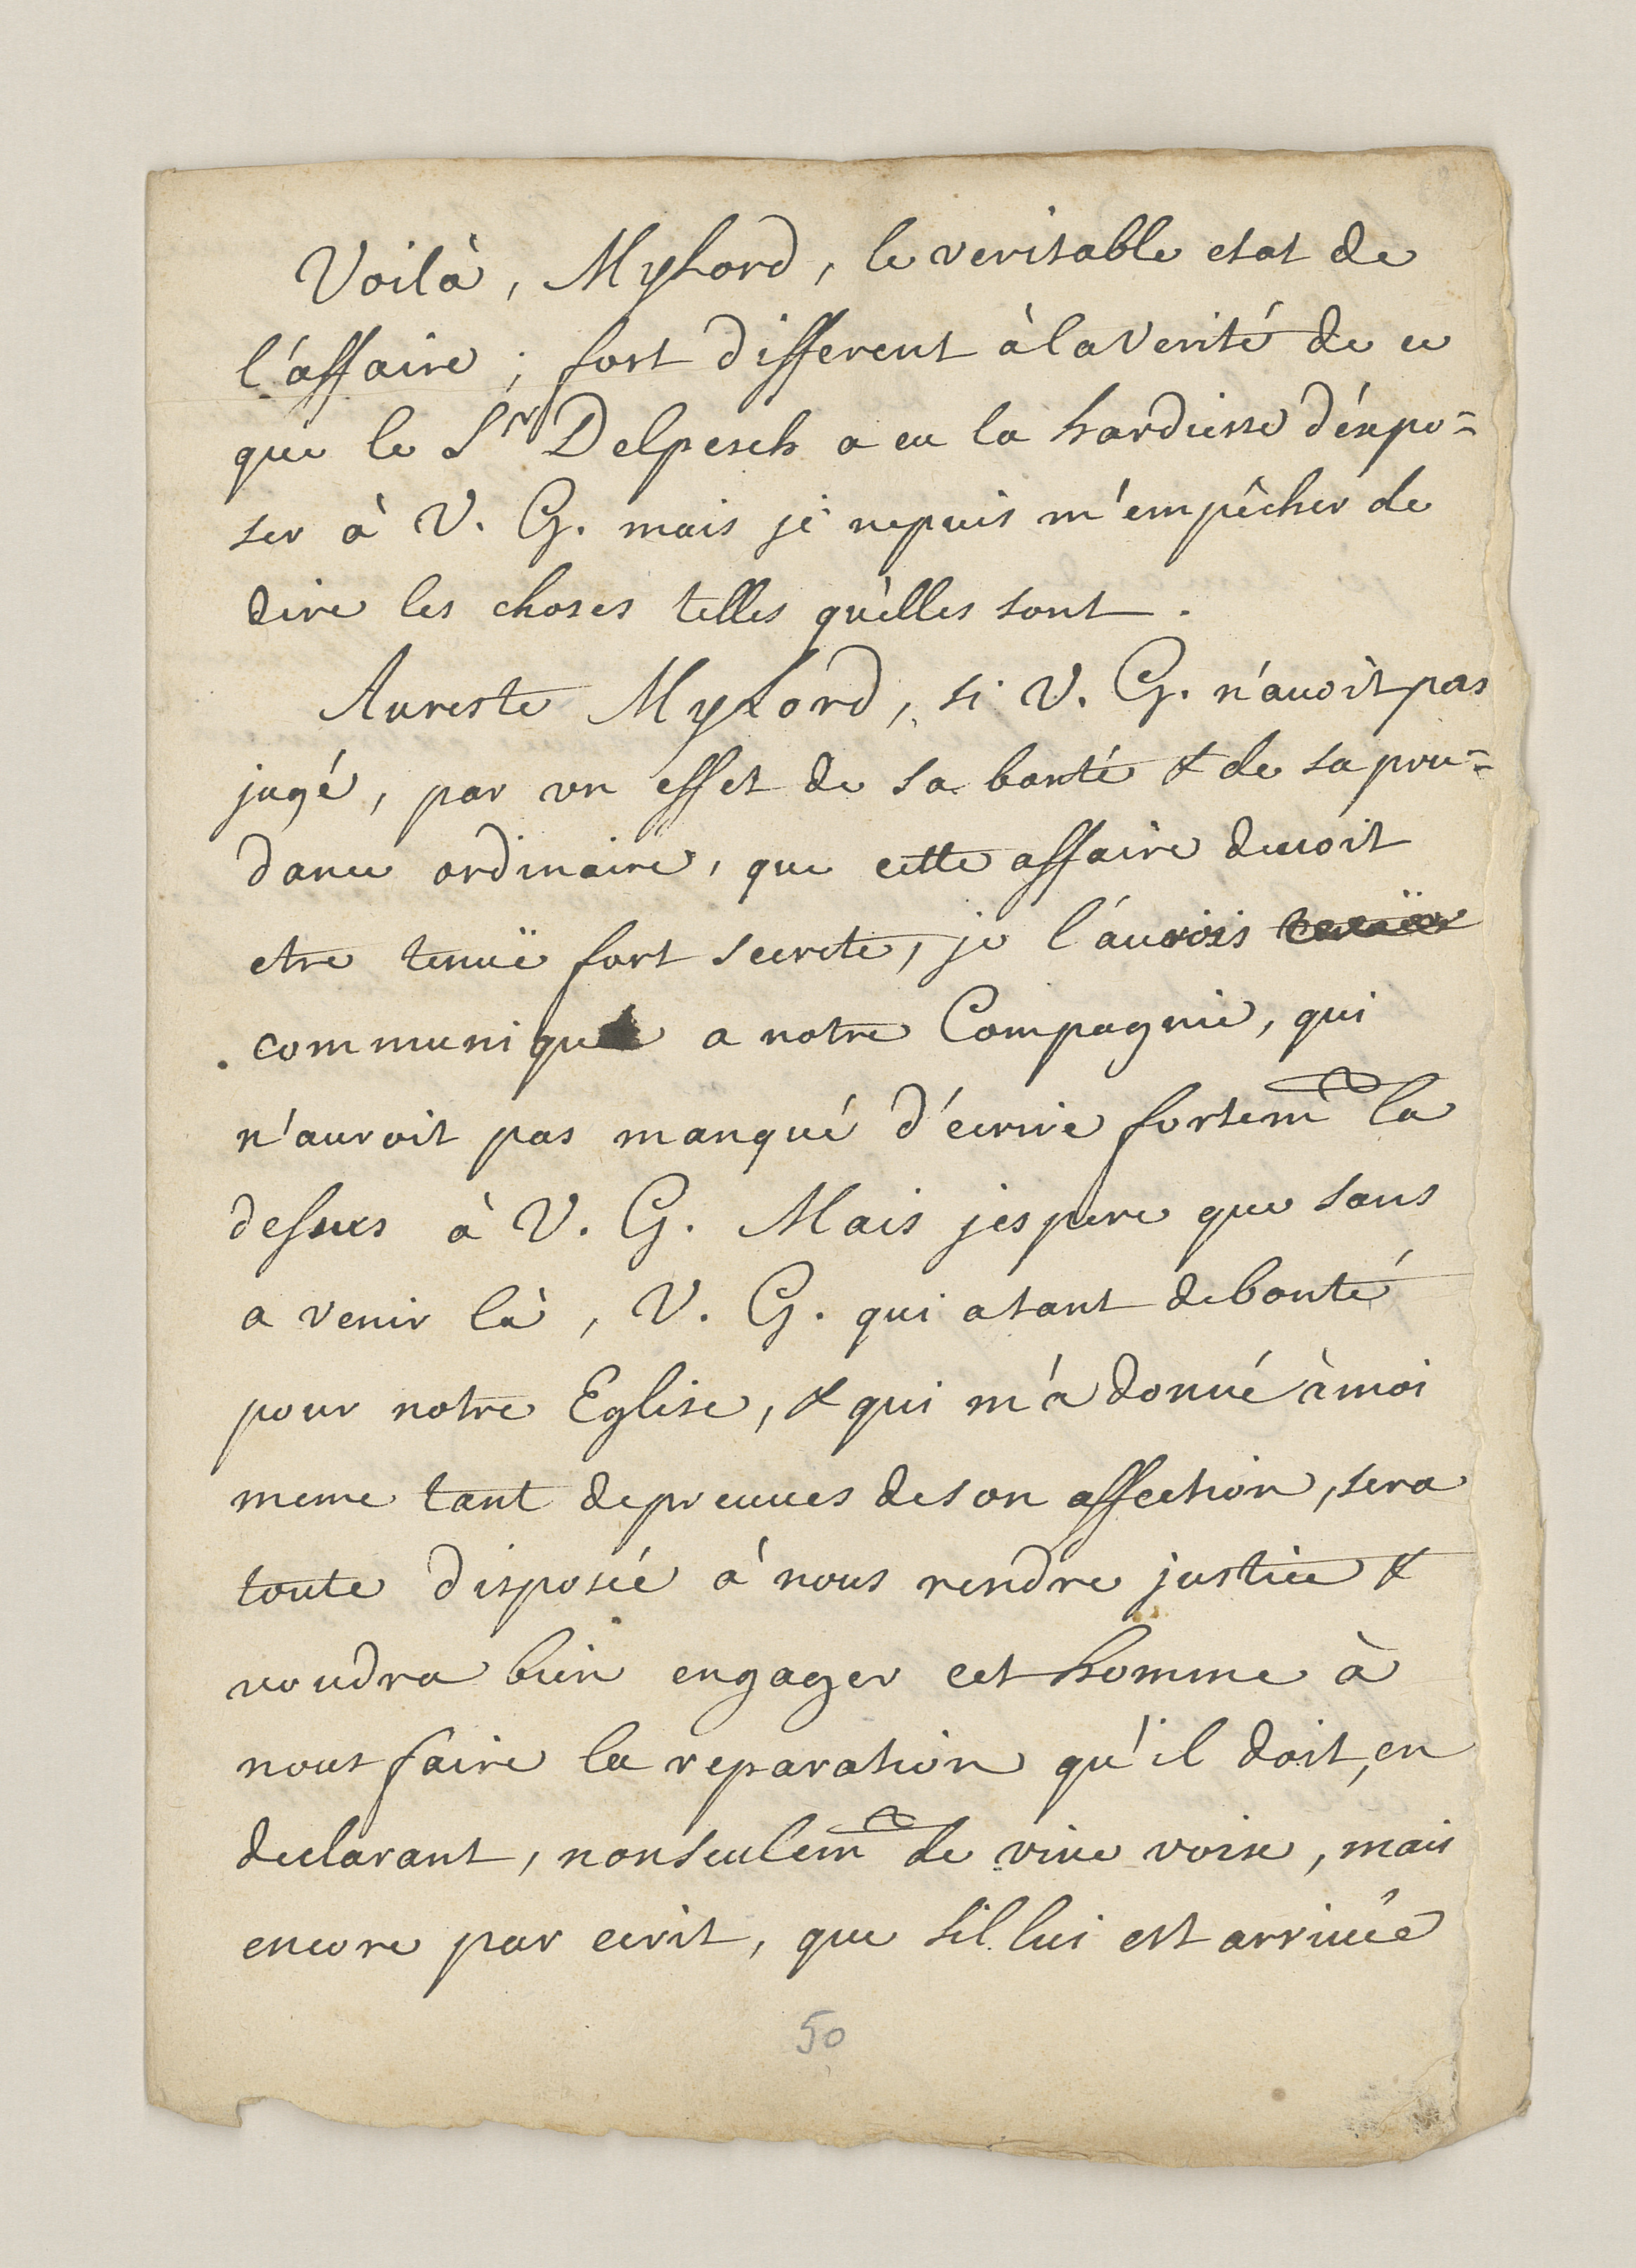 Voilà, MyLord, le veritable etat de
l'affaire; fort different à la Verité de ce
que le Sr Delpesch a eu la hardiesse d'éxpo=
ser à V. G. mais je ne puis m'empêcher de
dire les choses telles qu'elles sont.
Au reste MyLord, si V. G. n'auoit pas
jugé, par vn effet de sa bonté & de sa pru=
dance ordinaire, que cette affaire deuoit
etre tenuë fort secrete, je l'aurois
communiqué a notre Compagnie, qui
n'auroit pas manqué d'écrire fortemt la
dessus à V. G. Mais j'espere que sans
a venir là, V. G. qui a tant de bonté
pour notre Eglise, & qui m'a donné à moi
meme tant de preuues de son affection, sera
toute disposée à nous rendre justice &
voudra bien engager cet homme à
nous faire la reparation qu'il doit, en
declarant, non seulemt de viue voix, mais
encore par ecrit, que s'il lui est arriué
50